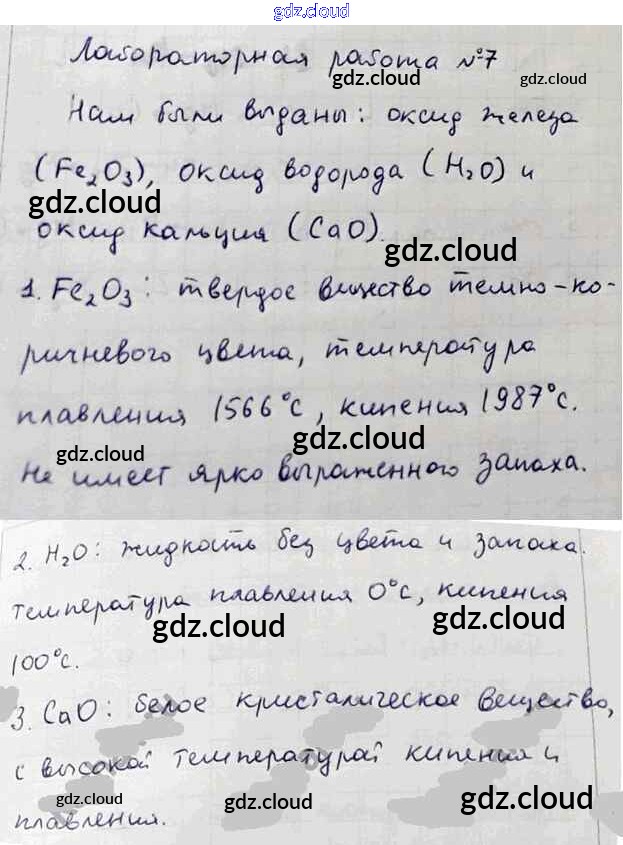 gdz.cloud
Лабораторная работа №7
gdz.cloud
gdz.cloud
Нам были выданы: оксид железа
(Fe₂O₃), оксид водорода (H₂O) и
gdz.cloud
оксид кальция (CaO).
gdz.cloud
1. Fe₂O₃: твердое вищество темно-ко-
ричневого цвета, температура
плавления 1566°C, кипения 1987°C.
gdz.cloud
gdz.cloud
Не имеет ярко выраженного запаха.
2. H₂O: жидкость без цвета и запаха.
температура плавления 0°C, кипения
gdz.cloud
gdz.cloud
100°C.
3. CaO: белое кристалическое вещество,
с высокой температурай кипения и
gdz.cloud
gdz.cloud
gdz.cloud
плавления.